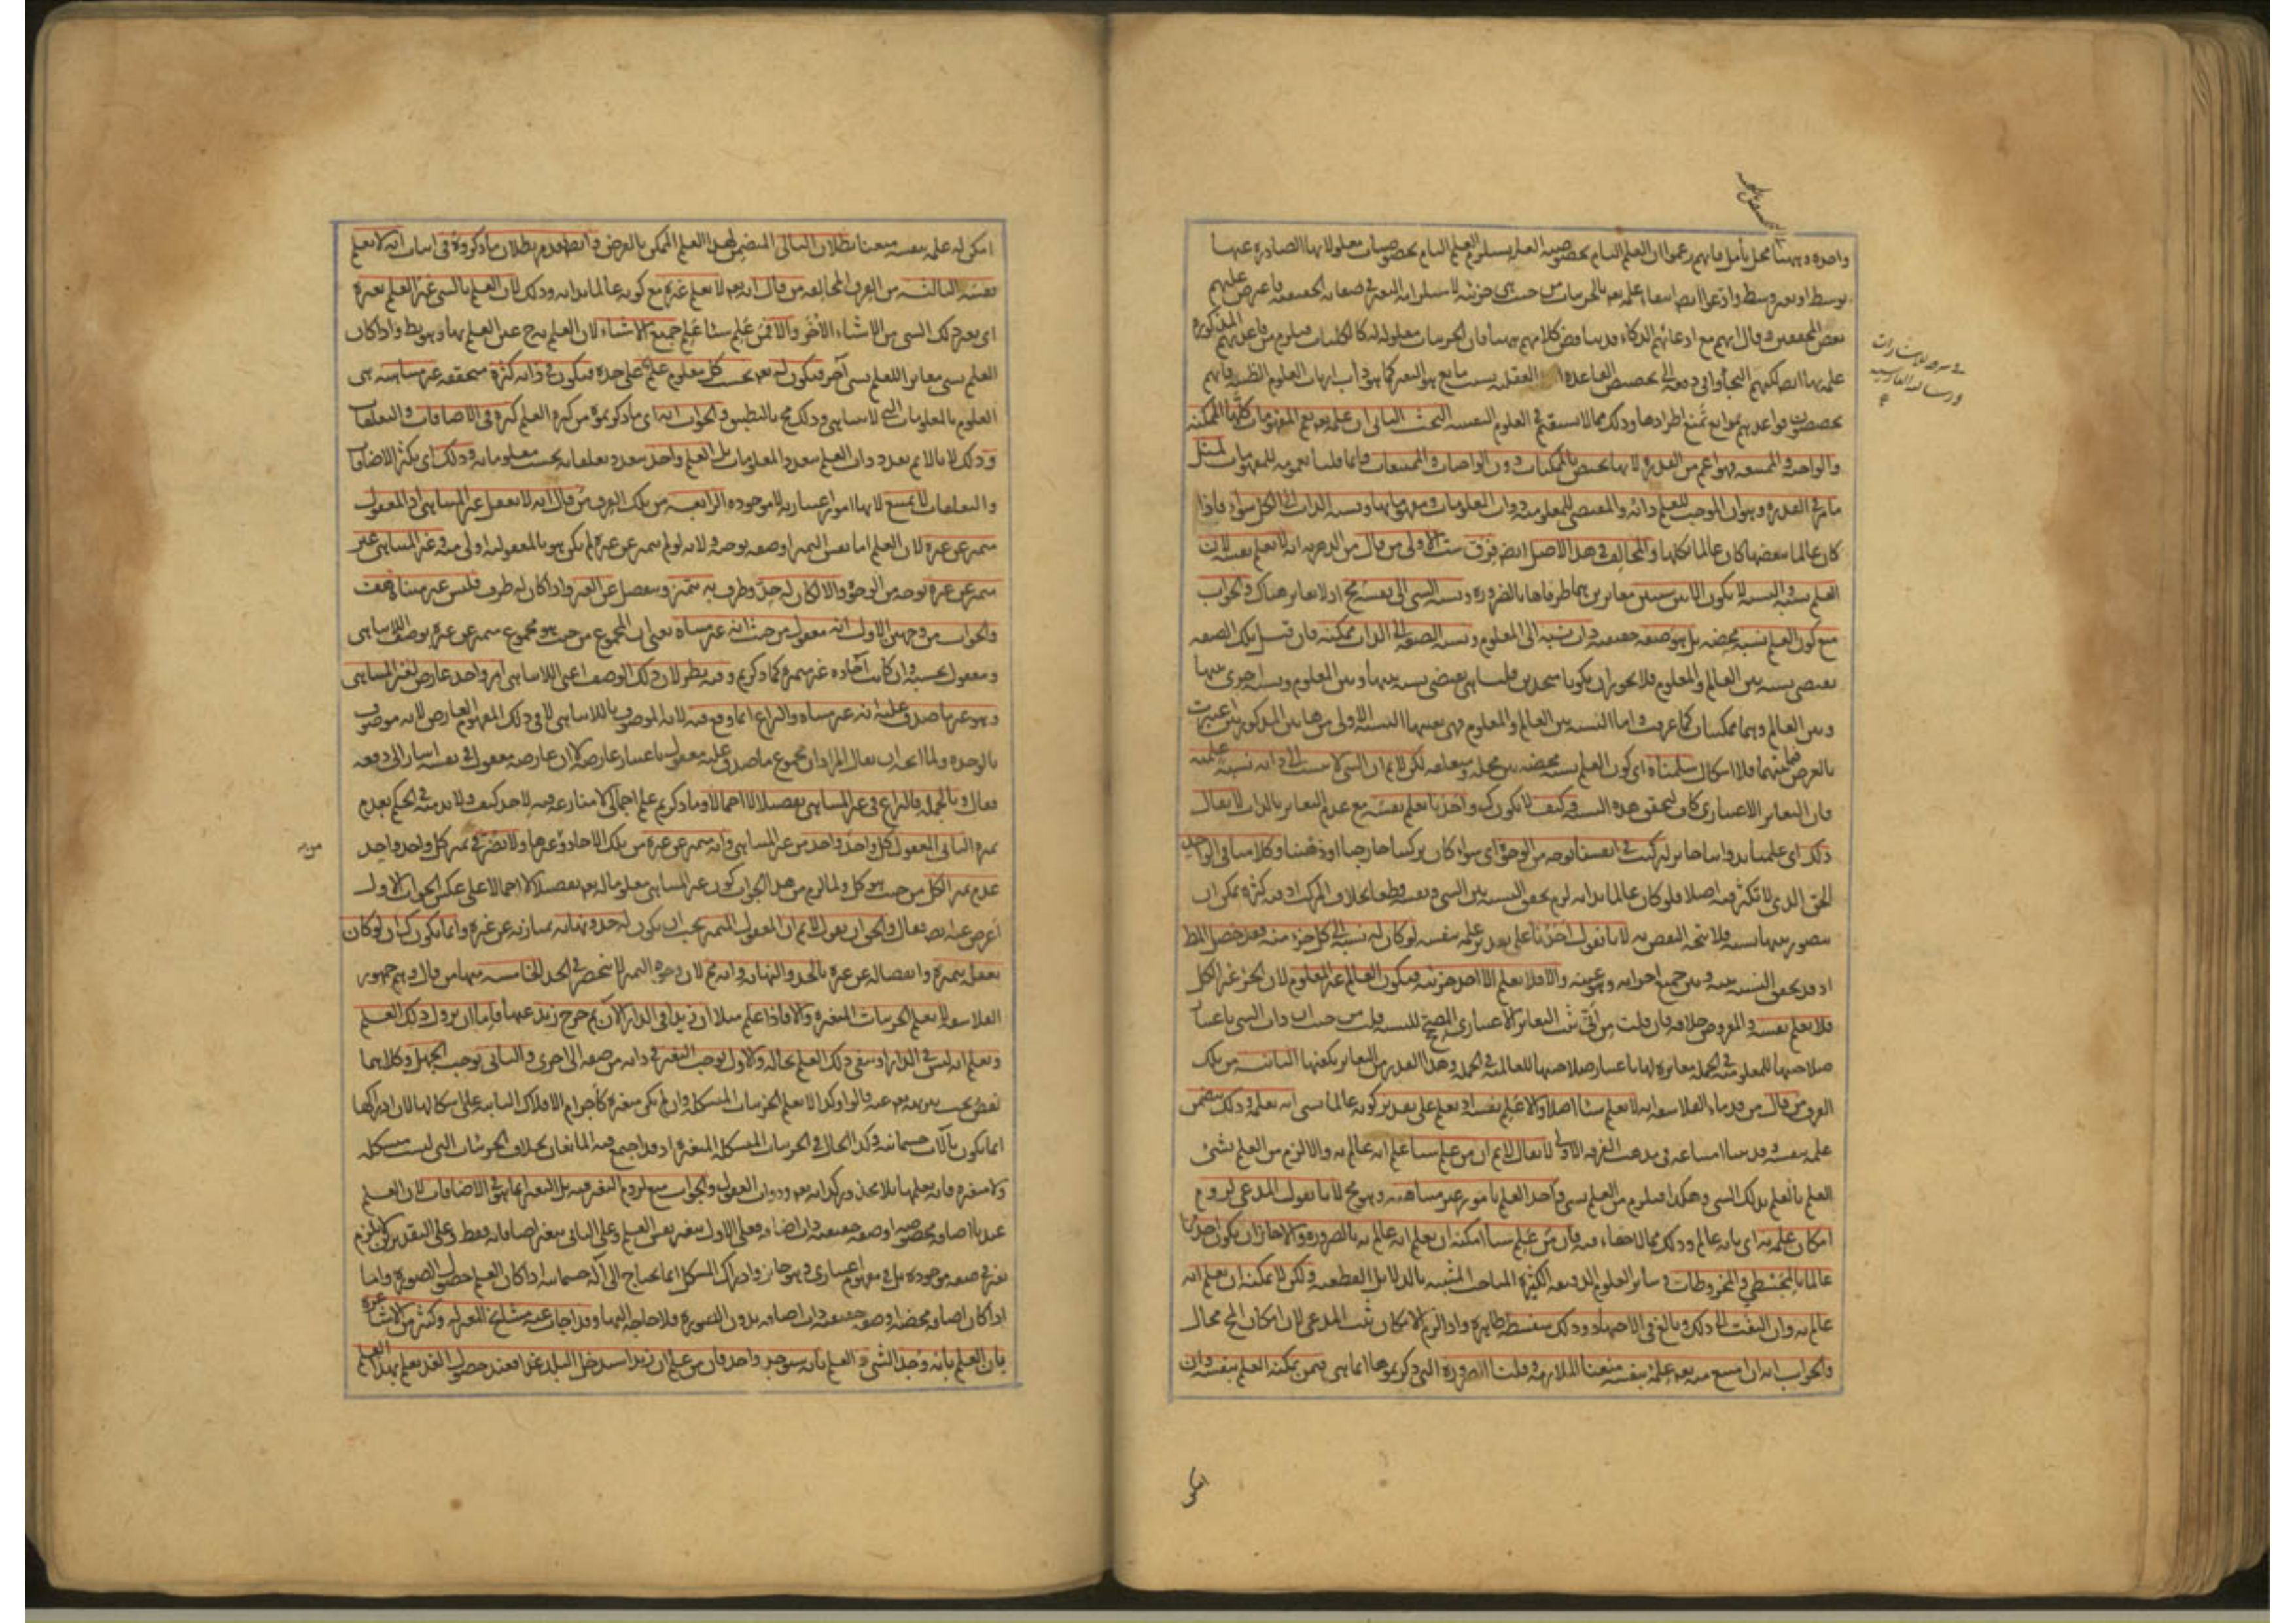 واحدة وههنا محل تأمل فانهم زعموا ان العلم التام بخصوصية العلة يستلزم العلم التام بخصوصيات معلولاتها الصادرة عنها
بوسط او بغير وسط وادعوا ايضا انتفاء علمه تعالى بالجزئيات من حيث هي جزئية لاستلزامه التغير في صفاته الحقيقية فاعترض عليهم
بعض المحققين وقال انهم مع ادعائهم الذكاء قد تناقض كلامهم ههنا فان الجزئيات معلولة له كالكليات فيلزم من قاعدتهم المذكورة
علمه بها ايضا لكنهم التجأوا في دفعه الى تخصيص القاعدة العقلية بسبب مانع هو التغير كما هو دأب ارباب العلوم الظنية فانهم
يخصصون قواعدهم بموانع تمنع اطرادها وذلك مما لا يستقيم في العلوم اليقينية البحث الثاني ان علمه تعالى يعم المفهومات كلها الممكنة
والواجبة والممتنعة فهو اعم من القدرة لانها تختص بالممكنات دون الواجبات والممتنعات وانما قلنا بعمومه للمفهومات لمثل
ما مر في القدرة وهو ان الموجب للعلم ذاته والمقتضي للمعلومية ذوات المعلومات ومفهوماتها ونسبة الذات الى الكل سواء فاذا
كان عالما ببعضها كان عالما بكلها والمخالف في هذا الاصل ايضا فرق ست الاولى من قال من الدهرية انه لا يعلم نفسه لان
العلم نسبة والنسبة لا تكون الا بين شيئين متغايرين هما طرفاها بالضرورة ونسبة الشي الى نفسه مح اذ لا تغاير هناك والجواب
منع كون العلم نسبة محضة بل هو صفة حقيقية ذات نسبة الى المعلوم ونسبة الصفة الى الذات ممكنة فان قيل تلك الصفة
تقتضي نسبة بين العالم والمعلوم فلا يجوز ان يكونا متحدين قلنا هي تقتضي نسبة بينها وبين المعلوم ونسبة اخرى بينها
وبين العالم وهما ممكنتان كما عرفت واما النسبة بين العالم والمعلوم فهي بعينها النسبة الاولى من هاتين المذكورتين اعتبرت
بالعرض فيما بينهما فلا اشكال سلمناه اي كون العلم نسبة محضة بين محله ومتعلقه لكن لا نم ان الشي لا ينسب الى ذاته نسبة علمية
فان التغاير الاعتباري كاف لتحقق هذه النسبة كيف لا يكون كذلك واحدنا يعلم نفسه مع عدم التغاير بالذات لا يقال
ذلك اي علمنا بذواتنا جائز لتركب في انفسنا بوجه من الوجوه اي سواء كان تركبا خارجيا او ذهنيا وكلامنا في الواحد
الحق الذي لا تكثر فيه اصلا فلو كان عالما بذاته لزم تحقق النسبة بين الشي ونفسه قطعا بخلاف المركب اذ فيه كثرة يمكن ان
يتصور بينها نسبة فلا يتجه النقض به لانا نقول احدنا على تقدير علمه بنفسه لو كان له نسبة الى كل جزء منه فقد حصل المط
اذ قد تحقق النسبة بينه وبين جميع اجزائه وهو عينه والا فلا يعلم الا احد جزئيه فيكون العالم غير المعلوم لان الجزء غير الكل
فلا يعلم نفسه والمفروض خلافه فان قلت من اين ثبت التغاير الاعتباري المصحح للنسبة قلت من حيث ان ذات الشي باعتبار
صلاحيتها للمعلومية في الجملة مغايرة لها باعتبار صلاحيتها للعالمية في الجملة وهذا القدر من التغاير يكفيها الثانية من تلك
الفرق من قال من قدماء الفلاسفة انه لا يعلم شيئا اصلا والا علم نفسه اذ يعلم على تقدير كونه عالما بشي انه يعلمه وذلك يتضمن
علمه بنفسه وقد بينا امتناعه في مذهب الفرقة الاولى لا يقال لا نم ان من علم شيئا علم انه عالم به والا لزم من العلم بشئ
العلم بالعلم بذلك الشي وهكذا فيلزم من العلم بشي واحد العلم بامور غير متناهية وهو مح لانا نقول المدعى لزوم
امكان علمه به اي بانه عالم وذلك مما لا خفاء فيه فان من علم شيئا امكنه ان يعلم انه عالم به بالضرورة والا جاز ان يكون احدنا
عالما بالمجسطي والمخروطات وسائر العلوم الدقيقة الكثيرة المباحث المثبتة بالدلائل القطعية ولكن لا يمكنه ان يعلم انه
عالم به وان التفت الى ذلك وبالغ في الاجتهاد وذلك سفسطة ظاهرة واذا لزم الامكان ثبت المدعى لان امكان المح محال
والجواب انه ان امتنع منه تعالى علمه بنفسه منعنا الملازمة وقلنا الضرورة التي ذكرتموها انما هي فيمن يمكنه العلم بنفسه وان
في شرح الاشارات
ورسالته الفارسية
امكن
امكن له علمه بنفسه منعنا بطلان التالي المتضمن لهذا العلم الممكن بالغرض وايضا قد مر بطلان ما ذكروه في اثبات انه لا يعلم
نفسه الثالثة من الفرق المخالفة من قال انه تعالى لا يعلم غيره مع كونه عالما بذاته وذلك لان العلم بالشي غير العلم بغيره
اي بغير ذلك الشي من الاشياء الاخر والا فمن علم شيئا علم جميع الاشياء لان العلم به ح عين العلم بها وهو بط واذا كان
العلم بشي مغايرا للعلم بشي آخر فيكون له تعالى بحسب كل معلوم علم على حدة فيكون في ذاته كثرة متحققة غير متناهية هي
العلوم بالمعلومات التي لا تتناهى وذلك مح بالتطبيق والجواب انه اي ما ذكرتموه من كثرة العلم كثرة في الاضافات والتعلقات
وذلك لانا لا نم تعدد ذات العلم بتعدد المعلومات بل العلم واحد تعدد تعلقاته بحسب معلوماته وذلك اي تكثر الاضافات
والتعلقات لا يمتنع لانها امور اعتبارية لا موجودة الرابعة من تلك الفرق من قال انه لا يعقل غير المتناهي اذ المعقول
متميز عن غيره لان العلم اما نفس التميز او صفة توجبه ولانه لو لم يتميز عن غيره لم يكن هو بالمعقولية اولى منه وغير المتناهي غير
متميز عن غيره بوجه من الوجوه والا لكان له حد وطرف به يتميز وينفصل عن الغير واذا كان له طرف فليس غير متناه هف
والجواب من وجهين الاول انه معقول من حيث انه غير متناه يعني ان المجموع من حيث هو مجموع متميز عن غيره بوصف اللاتناهي
ومعقول بحسبه وان كانت آحاده غير متميزة كما ذكرتم وفيه نظر لان ذلك الوصف اعني اللاتناهي امر واحد عارض لغير المتناهي
وهو غير ما صدق عليه انه غير متناه والنزاع انما وقع فيه لانه الموصوف باللاتناهي لا في ذلك المفهوم العارض لانه موصوف
بالوحدة ولما اتجه ان يقال المراد ان مجموع ما صدق عليه معقول باعتبار عارضه لا ان عارضه معقول في نفسه اشار الى دفعه
فقال وبالجملة فالنزاع في غير المتناهي تفصيلا لا اجمالا وما ذكرتم علم اجمالي لا منازعة فيه لاحد كيف ولا بد منه في الحكم بعدم
تميزه الثاني المعقول كل واحد واحد من غير المتناهي وانه متميز عن غيره من تلك الآحاد وغيرها ولا يضر في تميز كل واحد واحد
عدم تميز الكل من حيث هو كل ولما لزم من هذا الجواب كون غير المتناهي معلوما له تعالى تفصيلا لا اجمالا على عكس الجواب الاول
اعرض عنه ايضا فقال والحق ان نقول لا نم ان المعقول المتميز يجب ان يكون له حد ونهاية يمتاز به عن غيره وانما يكون كذلك ان لو كان
تعقل تميزه وانفصاله عن غيره بالحد والنهاية وانه مح لان وجوه التميز لا تنحصر في الحد الخامسة منها من قال وهم جمهور
الفلاسفة لا يعلم الجزئيات المتغيرة والا فاذا علم مثلا ان زيدا في الدار الآن ثم خرج زيد عنها فاما ان يزول ذلك العلم
ويعلم انه ليس في الدار او يبقى ذلك العلم بحاله والاول يوجب التغير في ذاته من صفة الى اخرى والثاني يوجب الجهل وكلاهما
نقص يجب تنزيهه تعالى عنه قالوا وكذا لا يعلم الجزئيات المتشكلة وان لم تكن متغيرة كاجرام الافلاك الثابتة على اشكالها لان ادراكها
انما يكون بآلات جسمانية وكذا الحال في الجزئيات المتشكلة المتغيرة اذ قد اجتمع فيه المانعان بخلاف الجزئيات التي ليست متشكلة
ولا متغيرة فانه يعلمها بلا محذور كذاته تعالى وذوات العقول والجواب منع لزوم التغير فيه بل التغير انما هو في الاضافات لان العلم
عندنا اضافة مخصوصة او صفة حقيقية ذات اضافة فعلى الاول يتغير نفس العلم وعلى الثاني يتغير اضافاته فقط وعلى التقديرين لا يلزم
تغير في صفة موجودة بل في مفهوم اعتباري وهو جائز وادراك المتشكل انما يحتاج الى آلة جسمانية اذا كان العلم حصول الصورة واما
اذا كان اضافة محضة او صفة حقيقية ذات اضافة بدون الصورة فلا حاجة اليها وقد اجاب عنه مشايخ المعتزلة وكثير من الاشاعرة
بان العلم بانه وجد الشئ والعلم بانه سيوجد واحد فان من علم ان زيدا سيدخل البلد غدا فعند حصول الغد يعلم بهذا العلم